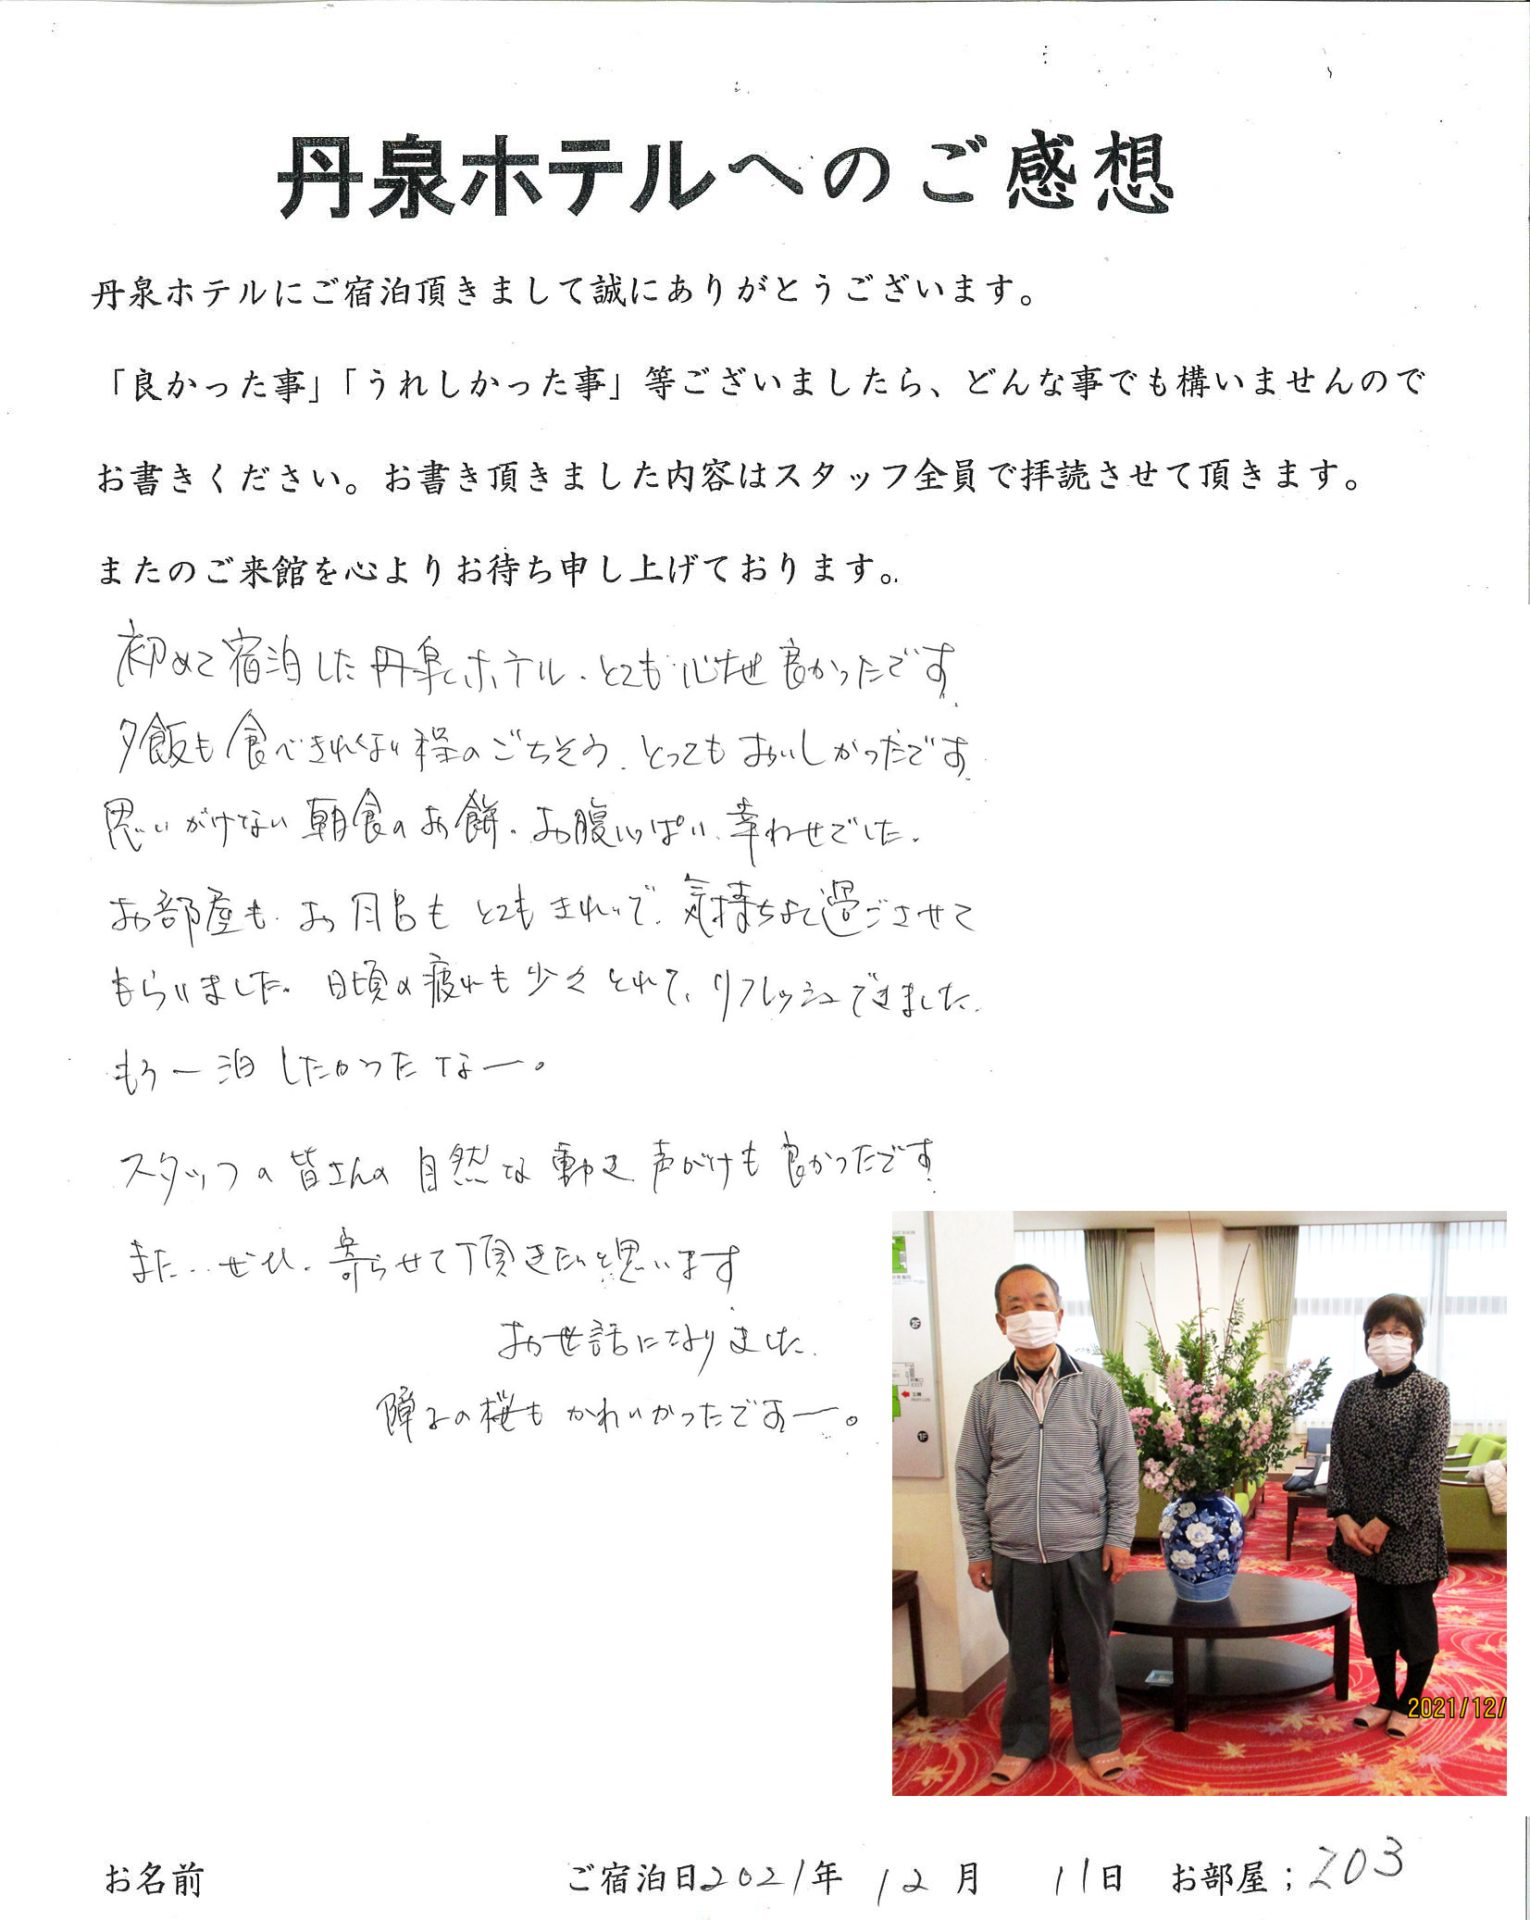 丹泉ホテルへのご感想
丹泉ホテルにご宿泊頂きまして誠にありがとうございます。
「良かった事」「うれしかった事」等ございましたら、どんな事でも構いませんので
お書きください。お書き頂きました内容はスタッフ全員で拝読させて頂きます。
またのご来館を心よりお待ち申し上げております。
初めて宿泊した丹泉ホテル、とても心地良かったです。
夕飯も食べきれない程のごちそう、とってもおいしかったです。
思いがけない朝食のお餅、お腹いっぱい、幸わせでした。
お部屋も、お風呂もとてもきれいで、気持ちよく過ごさせて
もらいました。日頃の疲れも少々とれて、リフレッシュできました。
もう一泊したかったなー。
スタッフの皆さんの自然な動き、声がけも良かったです。
また、ぜひ、寄らせて頂きたいと思います
お世話になりました。
障子の桜もかわいかったですー。
2021/12/
お名前 ご宿泊日2021年 12月 11日 お部屋;203